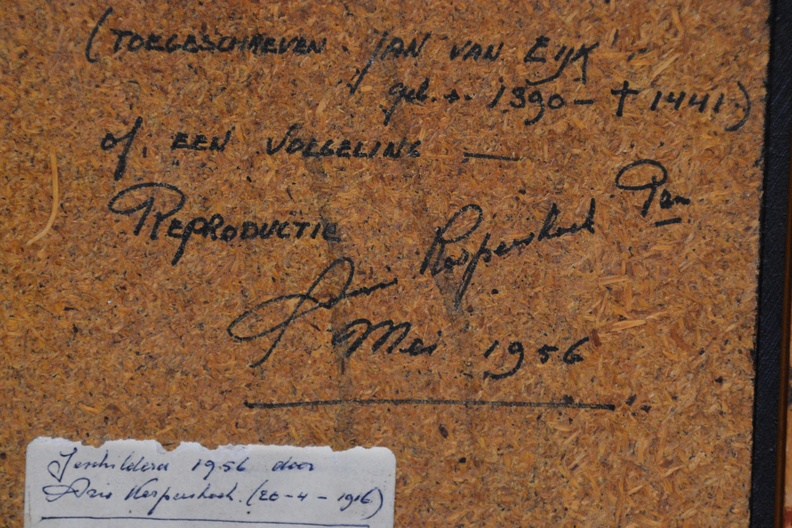 (TOEGESCHREVEN JAN VAN EIJK
geb. +. 1390 - † 1441.)
of. EEN VOLGELING —
REPRODUCTIE
Arie Korpershoek Pan
Mei 1956
Geschilderd 1956 door
Arie Korpershoek. (20-4-1916)